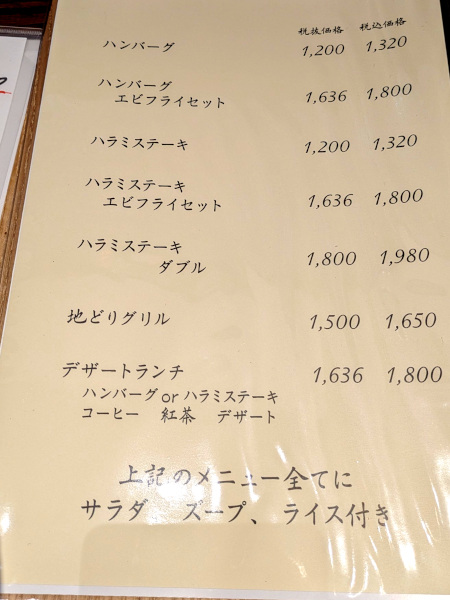 税抜価格 税込価格
ハンバーグ 1,200 1,320
ハンバーグ
エビフライセット 1,636 1,800
ハラミステーキ 1,200 1,320
ハラミステーキ
エビフライセット 1,636 1,800
ハラミステーキ
ダブル 1,800 1,980
地どりグリル 1,500 1,650
デザートランチ 1,636 1,800
ハンバーグorハラミステーキ
コーヒー 紅茶 デザート
上記のメニュー全てに
サラダ スープ、ライス付き